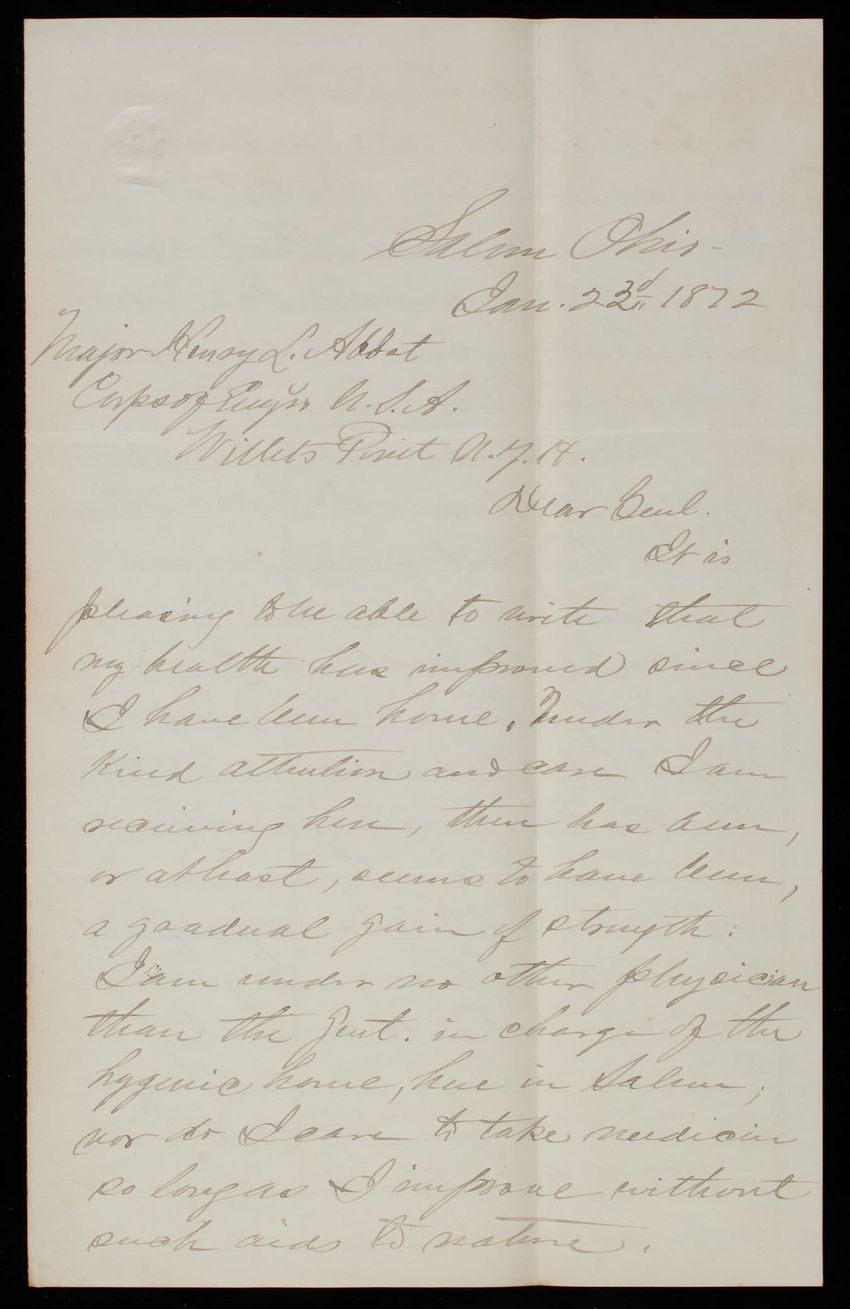 Salem Ohio -
Jan. 23d 1872
Major Henry L. Abbot
Corps of Engrs U.S.A.
Willets Point N.Y.H.
Dear Genl.
It is
pleasing to be able to write that
my health has improved since
I have been home. Under the
kind attention and care I am
recieving here, there has been,
or at least, seems to have been,
a graadual gain of strength.
I am under no other physician
than the Gent. in charge of the
hygenic home, here in Salem;
nor do I care to take medicin
so long as I improve without
such aids to nature.